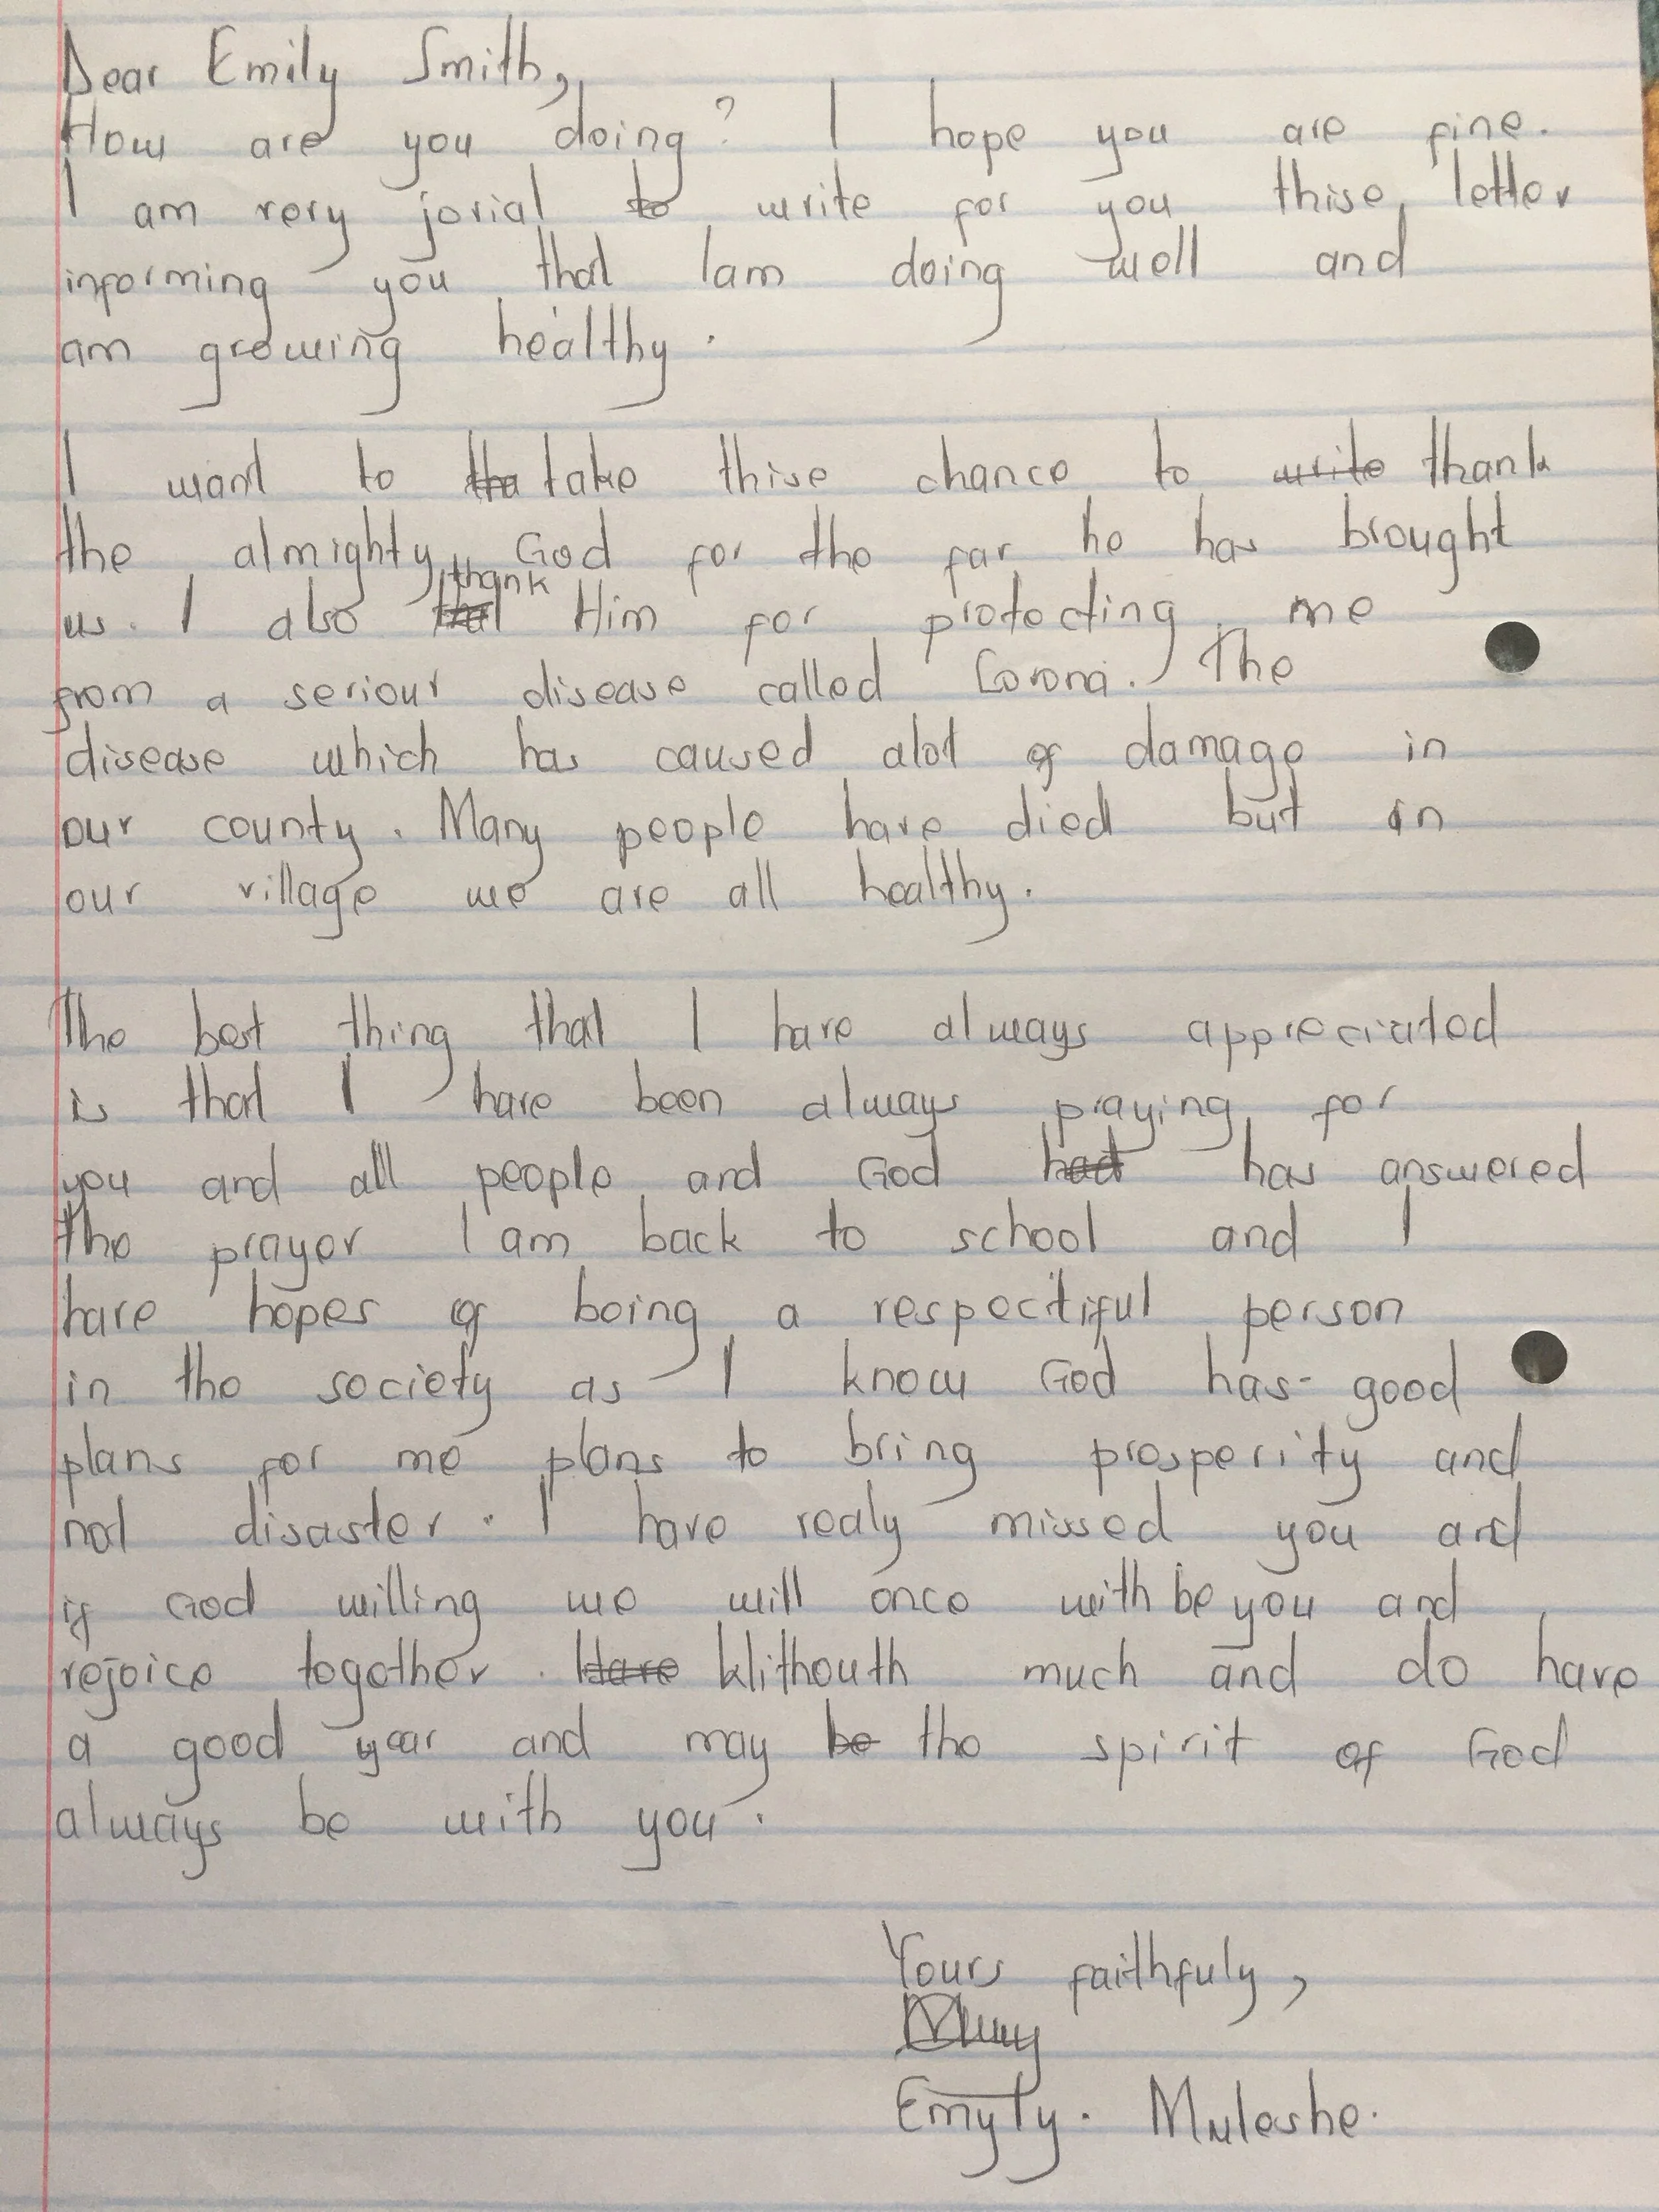 Dear Emily Smith,
How are you doing? I hope you are fine.
I am very jovial to write for you thise letter
informing you that Iam doing well and
am growing healthy.
I want to take thise chance to thank
the almighty God for the far he has brought
us. I also thank Him for protecting me
from a seriour disease called Corona. The
disease which has caused alot of damage in
our county. Many people have died but in
our village we are all healthy.
The best thing that I have always appreciated
is that I have been always praying for
you and all people and God has answered
the prayer I am back to school and I
have hopes of being a respectiful person
in the society as I know God has good
plans for me plans to bring prosperity and
not disaster. I have realy missed you and
if God willing we will once with be you and
rejoice together. Withouth much and do have
a good year and may the spirit of God
always be with you.
Yours faithfuly,
Muleshe.